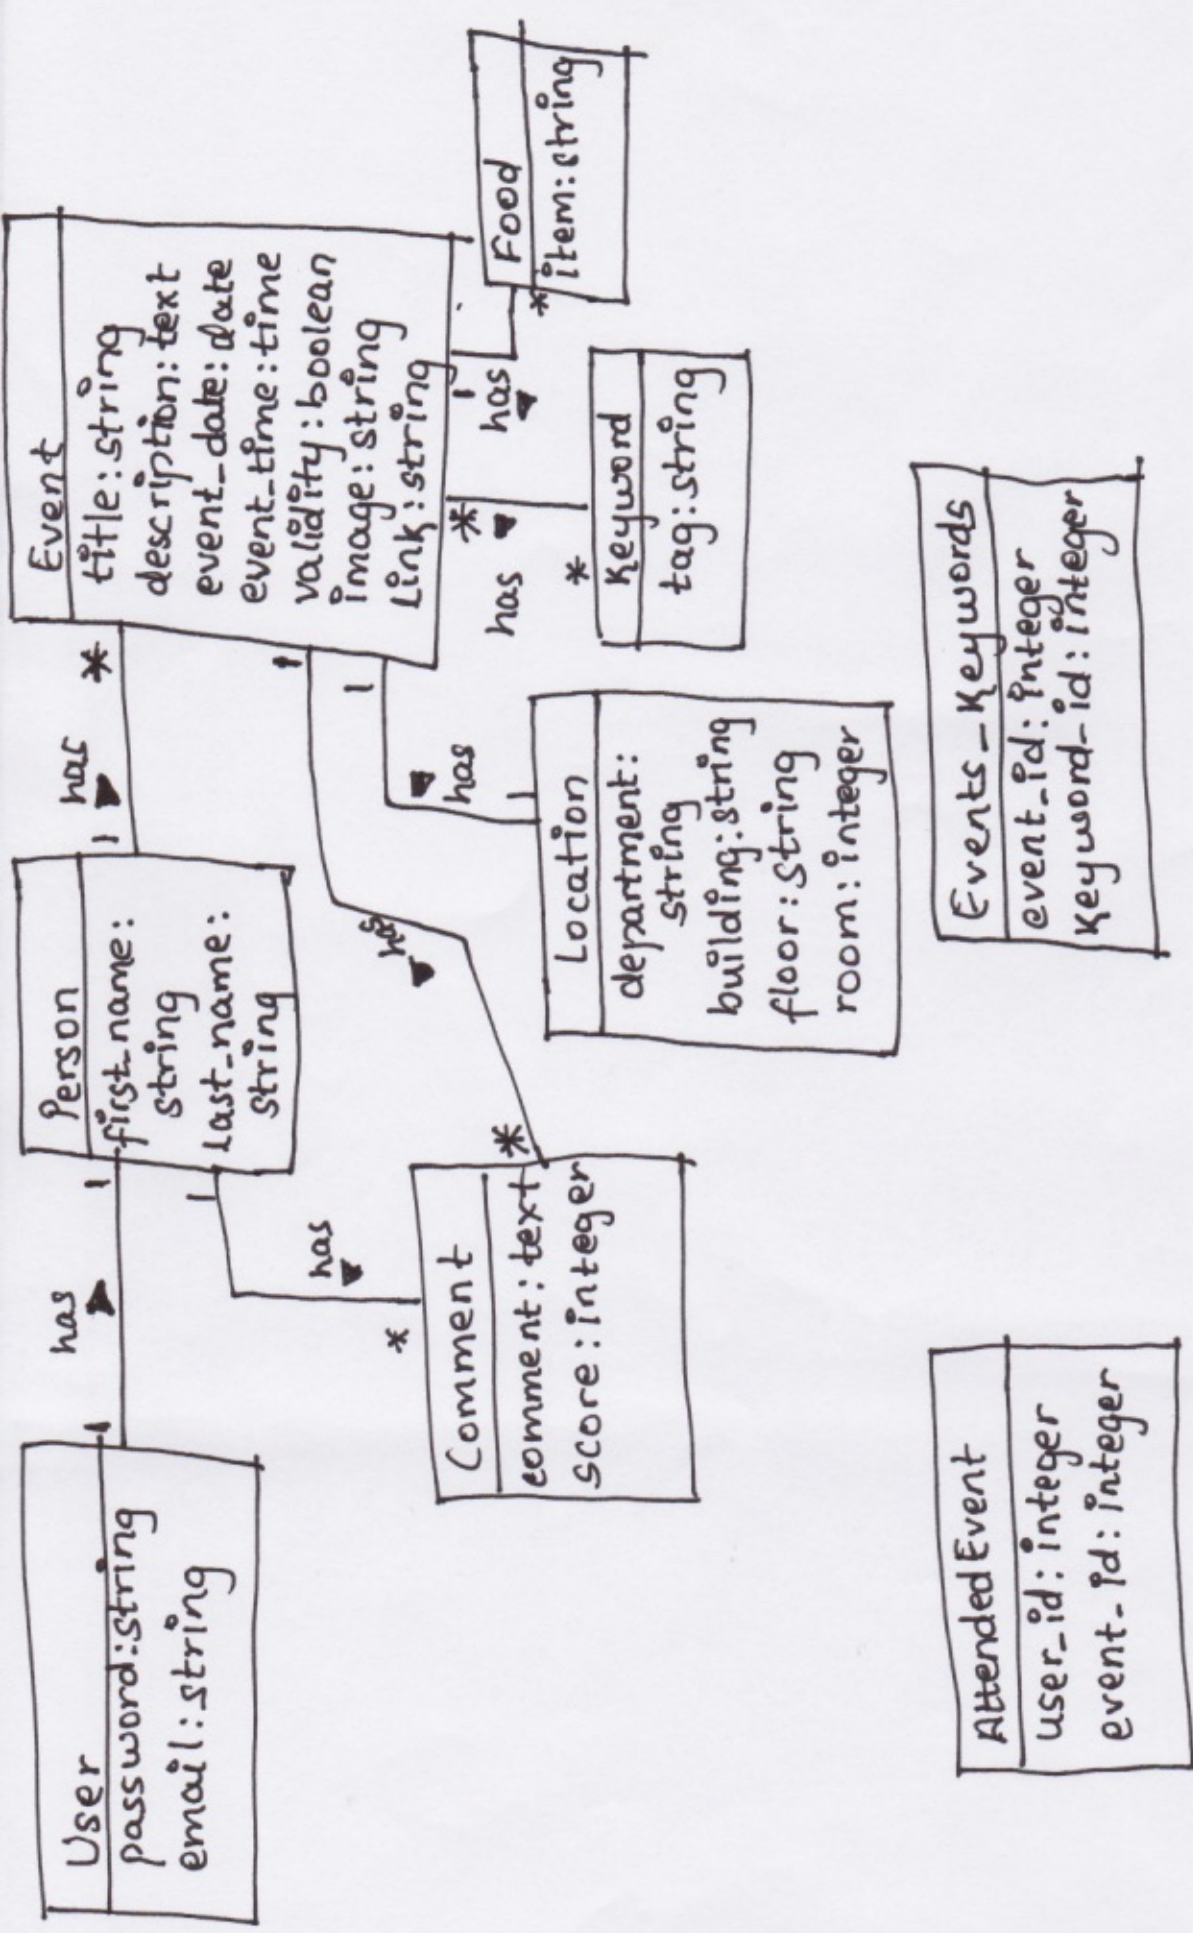 User
password:string
email:string
1
has
1
Person
first_name:
string
last_name:
string
1
has
*
Event
title:string
description:text
event_date:date
event_time:time
validity:boolean
image:string
Link:string
1
has
*
Comment
comment:text
score:integer
*
has
1
1
has
1
Location
department:
string
building:string
floor:string
room:integer
*
has
*
Keyword
tag:string
1
has
*
Food
item:string
AttendedEvent
user_id:integer
event_id:integer
Events_Keywords
event_id:integer
Keyword_id:integer